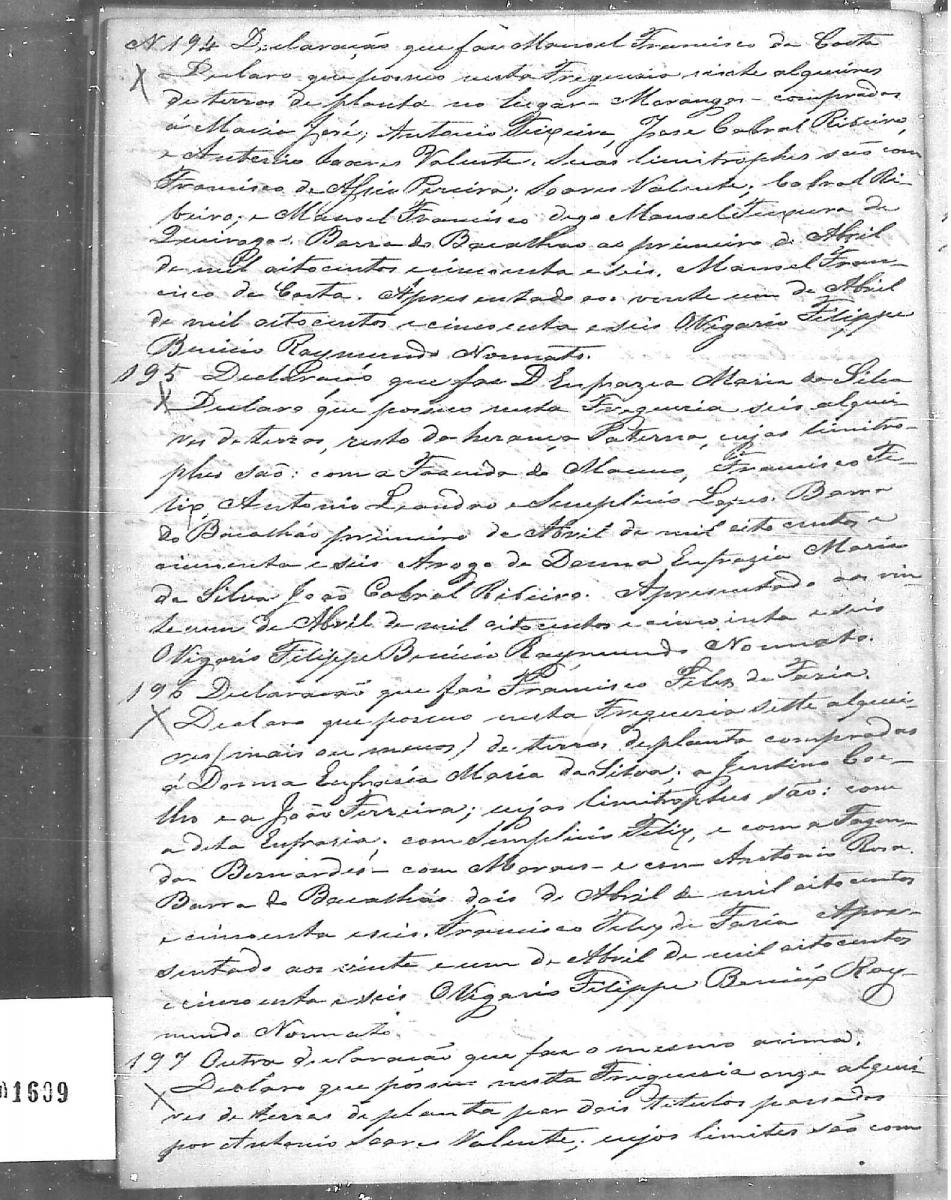 N 194 Declaração que faz Manoel Francisco da Costa
Declaro que possuo nesta Freguesia siete alqueires
de terras de planta no lugar - Morangos - compradas
á Maria José; Antonio Teixeira, Jose Cabral Ribeiro,
e Antonio Soares Valente. Suas limitrophes são com
Francisco de Assis Pereira; Soares Valente; Cabral Ri-
beiro; e Manoel Francisco digo Manoel de
Queiroga. Barra do Bacalháo ao primeiro de Abril
de mil oitocentos e cincoenta e seis. Manoel Fran-
cisco da Costa. Apresentado aos vinte um de Abril
de mil oitocentos e cincoenta e seis O Vigario Filippe
Benicio Raymundo Nonnato.
195 Declaração que faz D Eufrazia Maria da Silva
Declaro que possuo nesta Freguesia seis alquei-
res de terras, resto da herança Paterna, cujas limitro-
phes são: com a Fazenda do Francisco Fe-
lix, Antonio Leandro e Simplicio Lopes. Barra
do Bacalháo primeiro de Abril de mil oito centos e
cincoenta e seis Arogo de Donna Eufrazia Maria
da Silva João Cabral Ribeiro. Apresentado aos vin
te um de Abril de mil oitocentos e cincoenta e seis
O Vigario Filippe Benicio Raymundo Nonnato.
196 Declaração que faz Francisco Felix de Faria.
Declaro que possuo nesta Freguesia sette alquei-
res (mais ou menos) de terras de planta compradas
á Donna Eufrasia Maria da Silva; a Justino Coe-
lho e a João Ferreira; cujas limitrophes são: com
a dita Eufrasia; com Simplicio Felix, e com a Fazen-
da Bernardes - com Moraes - e com Antonio Rosa.
Barra do Bacalháo dois de Abril de mil oitocentos
e cincoenta e seis. Francisco Felix de Faria Apre-
sentado aos vinte e um de Abril de mil oitocentos
e cincoenta e seis O Vigario Filippe Benicio Ray-
mundo Nonnato.
197 Outra declaração que faz o mesmo acima.
Declaro que possuo nesta Freguesia onze alquei-
res de terras de planta por dois titulos passados
por Antonio Soares Valente; cujos limites são com
01609